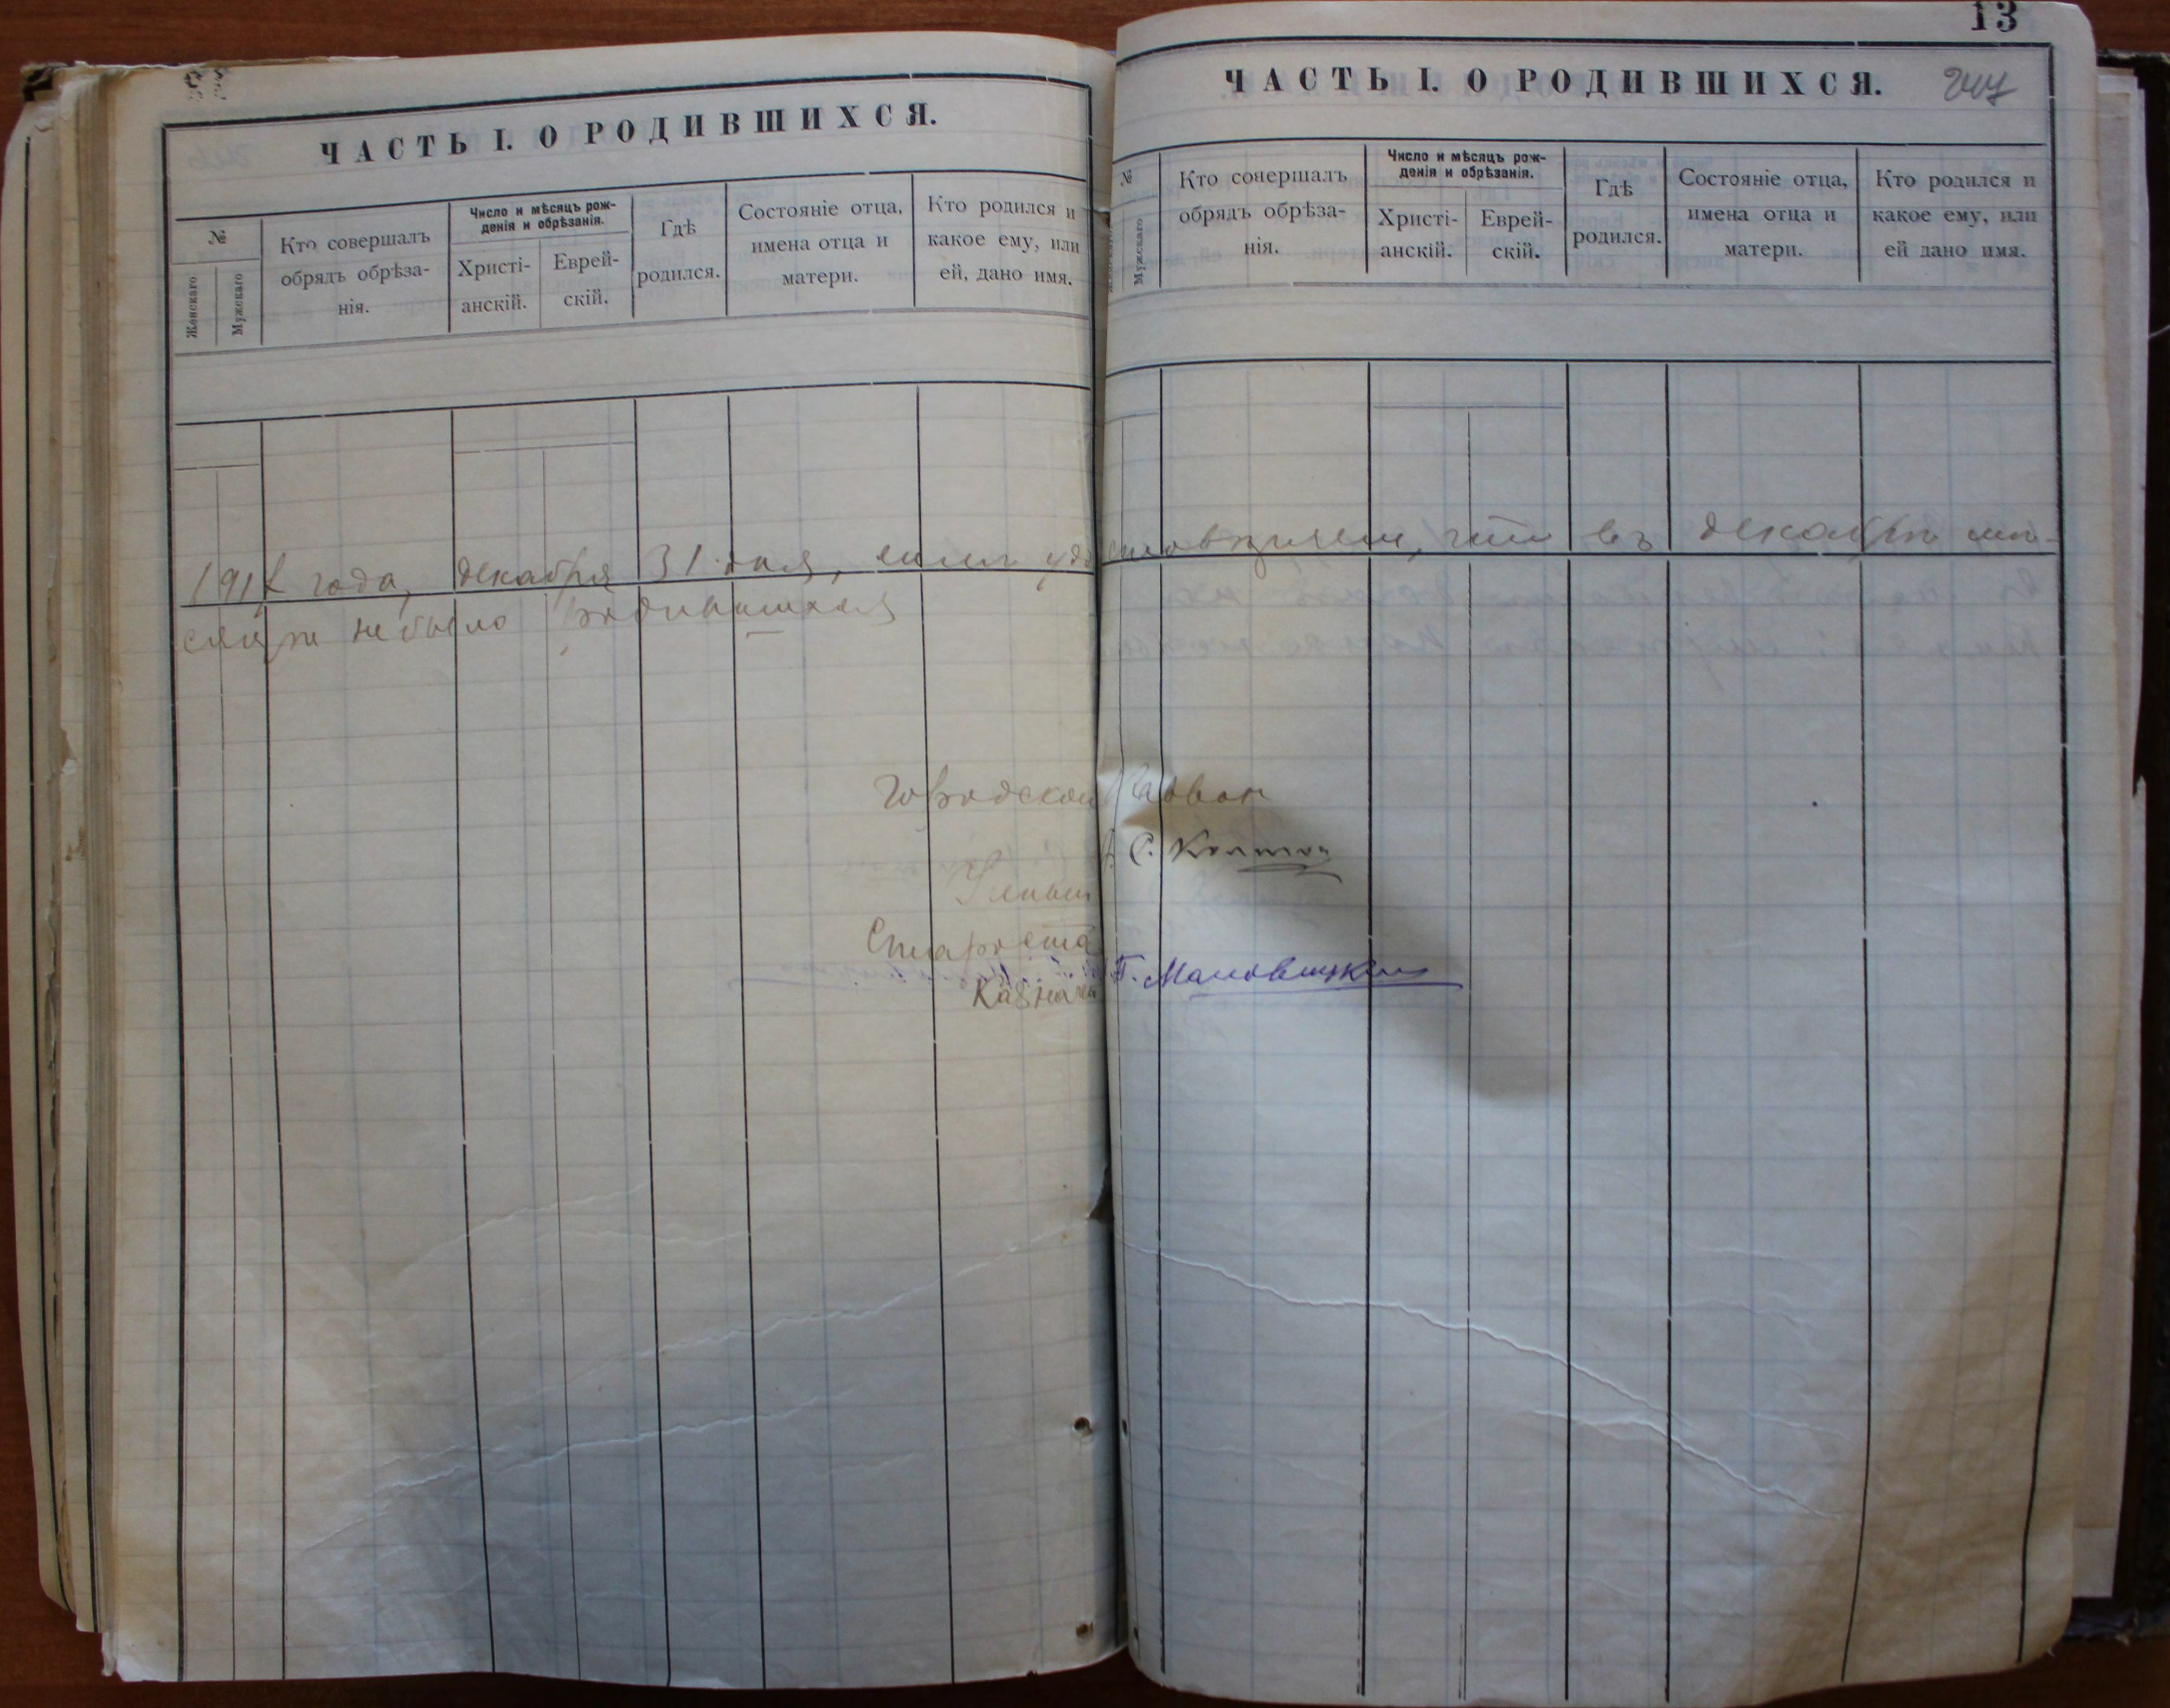 ЧАСТЬ I. О РОДИВШИХСЯ.
№
Женскаго
Мужскаго
Кто совершалъ
обрядъ обрѣза-
нія.
Число и мѣсяцъ рож-
денія и обрѣзанія.
Христі-
анскій.
Еврей-
скій.
Гдѣ
родился.
Состояніе отца,
имена отца и
матери.
Кто родился и
какое ему, или
ей, дано имя.
13
ЧАСТЬ I. О РОДИВШИХСЯ.
247
№
Мужскаго
Кто совершалъ
обрядъ обрѣза-
нія.
Число и мѣсяцъ рож-
денія и обрѣзанія.
Христі-
анскій.
Еврей-
скій.
Гдѣ
родился.
Состояніе отца,
имена отца и
матери.
Кто родился и
какое ему, или
ей дано имя.
года, декабря 31 дня, симъ удостовѣряемъ, что въ декабрѣ мѣ-
сяцѣ не было родившихся
Городской Раввин
С.
Ученый
Староста
Казначей